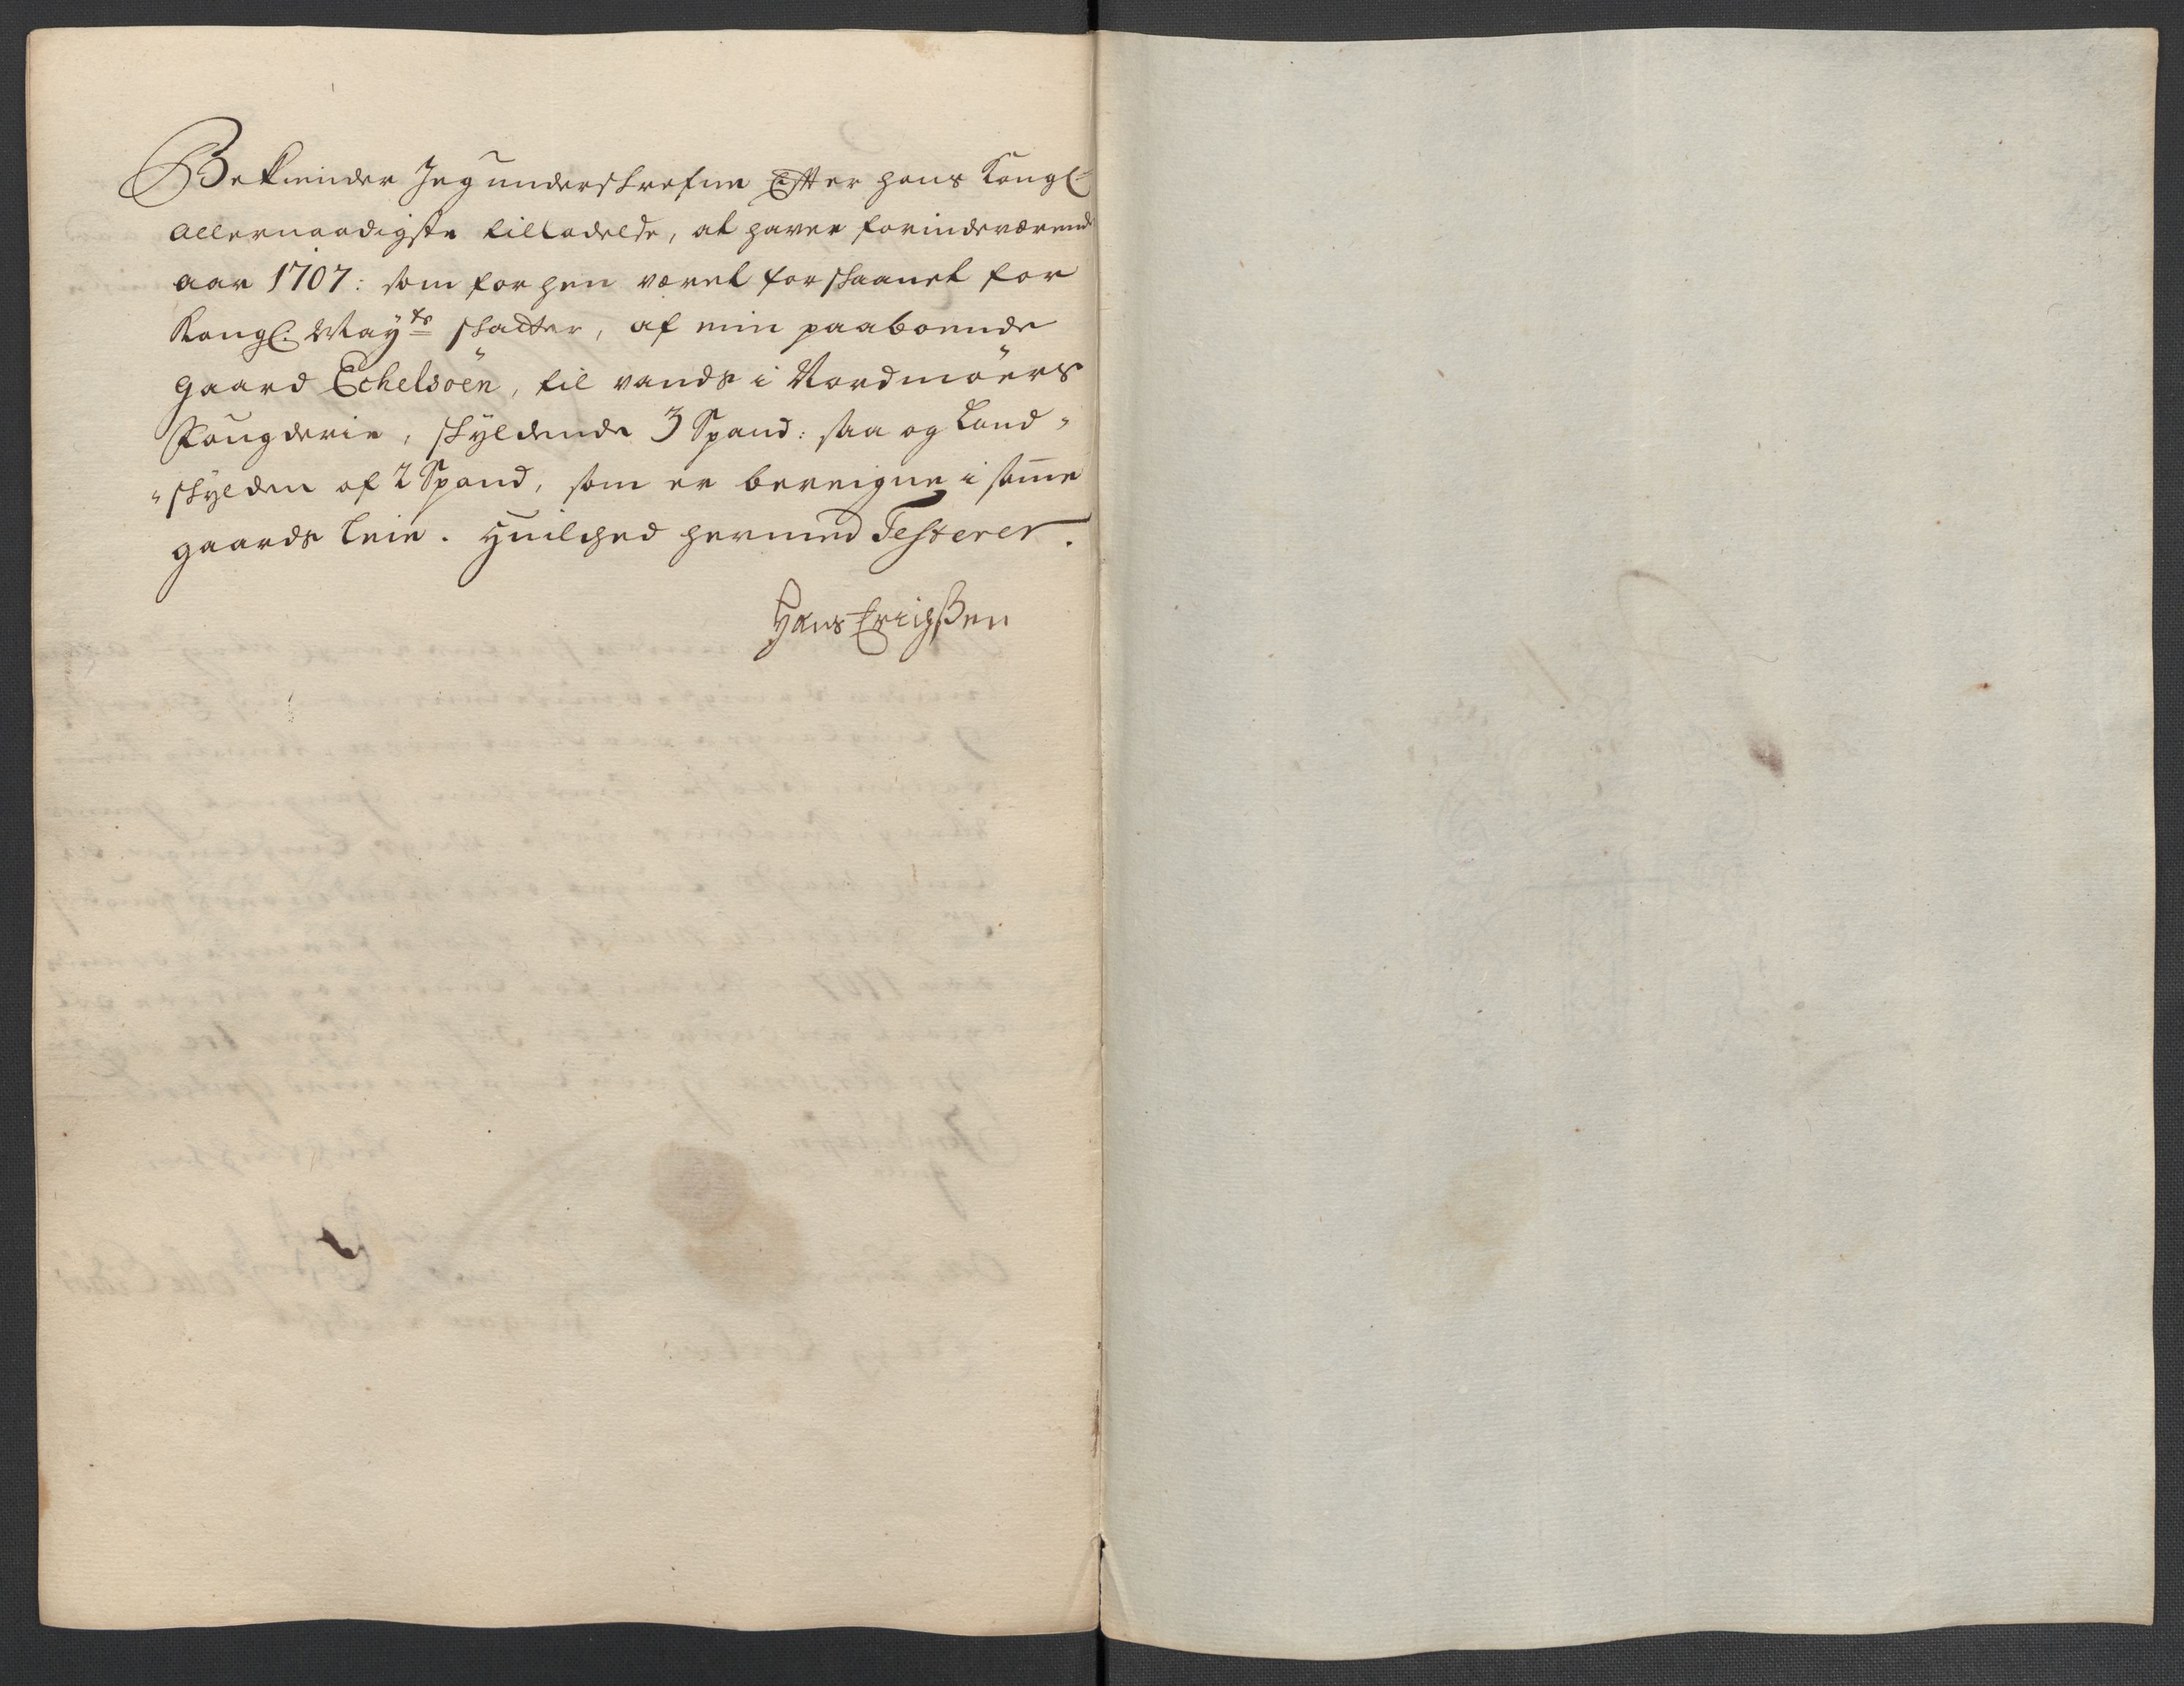 Bekiender Jeg underskrefne Effter hans Kongl:
allernaadigste tilladelse, at haver forindeværende
aar 1707: som forhen været forskaanet for
Kongl: May:ts skatter, af min paaboende
gaard Echelsöen, til vands i Nordmöers
Fougderie, skyldende 3 Spand: saa og Land-
-skylden af 2 Spand, som er bereigne i samme
gaards leie. Huilched hermed Testerer.
Hans Erichßen